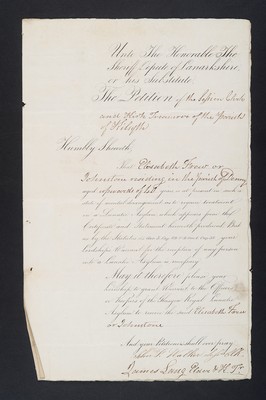 Unto The Honorable The
Sheriff Depute of Lanarkshire
or his Substitute
The Petition of the Session Clerk
and Kirk Treasurer of the Parish
of Kilsyth
Humbly Sheweth
That Elizabeth Frew or
Johnston residing in the parish of Denny
aged upwards of 40 years is at present in such a
state of mental derangement as to require treatment
in a Lunatic Asylum which appears from the
Certificate and Statement herewith produced. But
as by the Statute it is necessary to obtain your
Lordship's warrant for the reception of any person
into a Lunatic Asylum as insane
May it therefore please your
Lordship to grant Warrant to the Officers
or Keepers of the Glasgow Royal Lunatic
Asylum to receive the said Elizabeth Frew
or Johnstone
And your Petitioners shall ever pray
James Lang